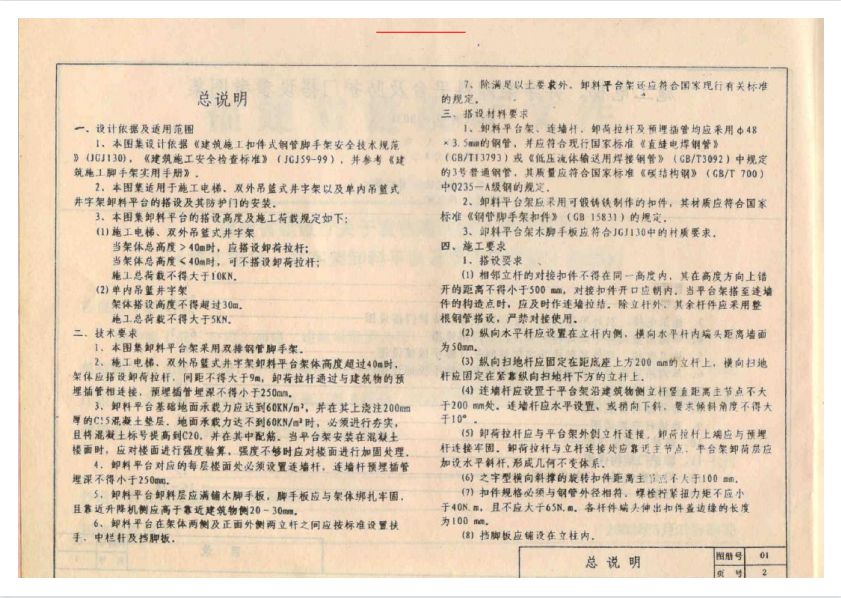 总说明
一、设计依据及适用范围
1、本图集设计依据《建筑施工扣件式钢管脚手架安全技术规范
》(JGJ130),《建筑施工安全检查标准》(JGJ59-99),并参考《建
筑施工脚手架实用手册》.
2、本图集适用于施工电梯、双外吊篮式井字架以及单内吊篮式
井字架卸料平台的搭设及其防护门的安装.
3、本图集卸料平台的搭设高度及施工荷载规定如下:
(1)施工电梯、双外吊篮式井字架
当架体总高度>40m时,应搭设卸荷拉杆;
当架体总高度<40m时,可不搭设卸荷拉杆;
施工总荷载不得大于10KN.
(2)单内吊篮井字架
架体搭设高度不得超过30m.
施工总荷载不得大于5KN.
二、技术要求
1、本图集卸料平台架采用双排钢管脚手架.
2、施工电梯、双外吊篮式井字架卸料平台架体高度超过40m时,
架体应搭设卸荷拉杆,间距不得大于9m,卸荷拉杆通过与建筑物的预
埋插管相连接,预埋插管埋深不得小于250mm.
3、卸料平台基础地面承载力应达到60KN/m²,并在其上浇注200mm
厚的C15混凝土垫层,地面承载力达不到60KN/m²时,必须进行夯实,
且将混凝土标号提高到C20,并在其中配筋.当平台架安装在混凝土
楼面时,应对楼面进行强度验算,强度不够时应对楼面进行加固处理.
4、卸料平台对应的每层楼面处必须设置连墙杆,连墙杆预埋插管
埋深不得小于250mm.
5、卸料平台卸料层应满铺木脚手板,脚手板应与架体绑扎牢固,
且靠近升降机侧应高于靠近建筑物侧20-30mm.
6、卸料平台在架体两侧及正面外侧两立杆之间应按标准设置扶
手、中栏杆及挡脚板.
7、除满足以上要求外,卸料平台架还应符合国家现行有关标准
的规定.
三、搭设材料要求
1、卸料平台架、连墙杆、卸荷拉杆及预埋插管均应采用φ48
×3.5mm的钢管,并应符合现行国家标准《直缝电焊钢管》
(GB/T13793)或《低压流体输送用焊接钢管》(GB/T3092)中规定
的3号普通钢管,其质量应符合国家标准《碳结构钢》(GB/T 700)
中Q235-A级钢的规定.
2、卸料平台架应采用可锻铸铁制作的扣件,其材质应符合国家
标准《钢管脚手架扣件》(GB 15831)的规定.
3、卸料平台架木脚手板应符合JGJ130中的材质要求.
四、施工要求
1、搭设要求
(1)相邻立杆的对接扣件不得在同一高度内,其在高度方向上错
开的距离不得小于500 mm,对接扣件开口应朝内.当平台架搭至连墙
件的构造点时,应及时作连墙拉结.除立杆外,其余杆件应采用整
根钢管搭设,严禁对接使用.
(2)纵向水平杆应设置在立杆内侧,横向水平杆内端头距离墙面
为50mm.
(3)纵向扫地杆应固定在距底座上方200 mm的立杆上,横向扫地
杆应固定在紧靠纵向扫地杆下方的立杆上.
(4)连墙杆应设置于平台架沿建筑物侧立杆竖直距离主节点不大
于200 mm处,连墙杆应水平设置,或稍向下斜,要求倾斜角度不得大
于10°.
(5)卸荷拉杆应与平台架外侧立杆连接,卸荷拉杆上端应与预埋
杆连接牢固.卸荷拉杆与立杆连接处应靠近主节点,平台架卸荷层应
加设水平斜杆,形成几何不变体系.
(6)之字型横向斜撑的旋转扣件距离主节点不大于100 mm.
(7)扣件规格必须与钢管外径相符,螺栓拧紧扭力矩不应小
于40N.m,且不应大于65N.m.各杆件端头伸出扣件盖边缘的长度
为100 mm.
(8)挡脚板应铺设在立柱内.
总说明
图册号 01
页 号 2